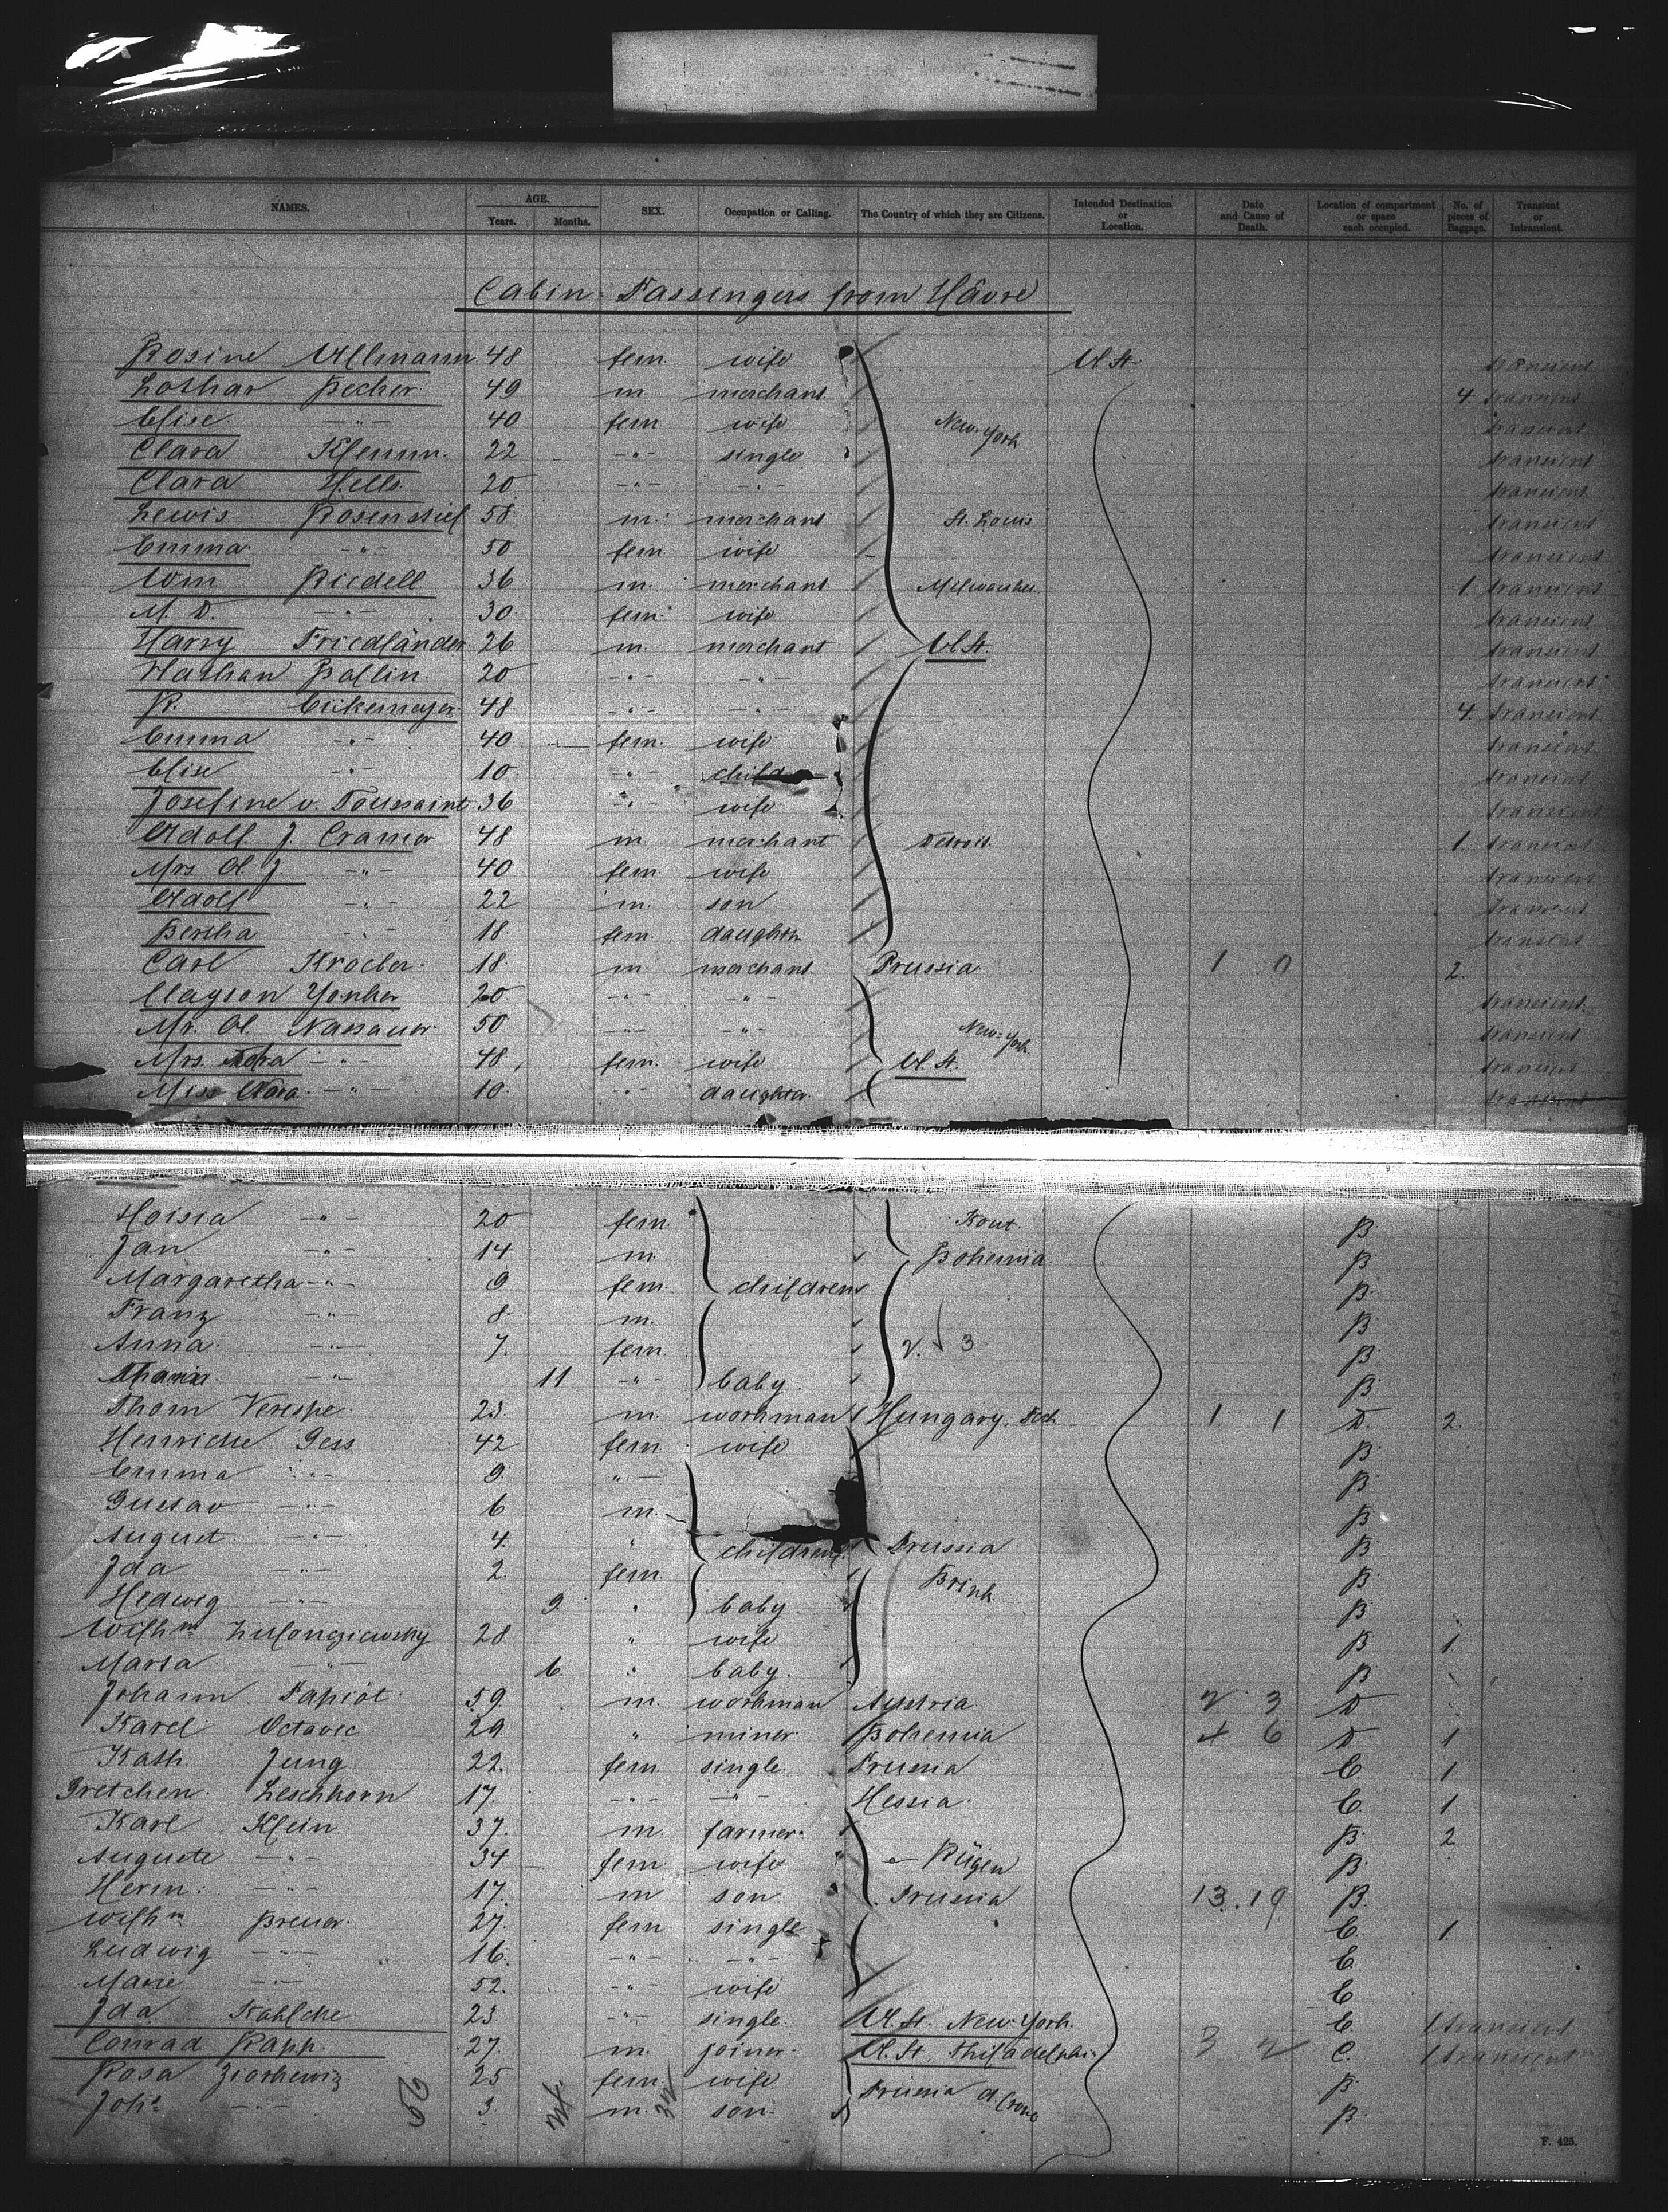 NAMES. AGE. Years. Months. SEX. Occupation or Calling. The Country of which they are Citizens. Intended Destination or Location. Date and Cause of Death. Location of compartment or space each occupied. No. of pieces of Baggage. Transient or Intransient.
Cabin-Passengers from Hâvre
Rosine Ullmann 48 fem. wife U. St. transient
Lothar Becher 49 m. merchant 4 transient
Elise -"- 40 fem wife New-York transient
Clara Klemm. 22 -"- single transient
Clara Hells. 20 -"- -"- transient
Lewis Rosenstiel 58 m. merchant St. Louis transient
Emma -"- 50 fem. wife transient
Wm Riedell 36 m. merchant Milwaukee 1 transient
M. D. -"- 30 fem. wife transient
Harry Friedländer 26 m. merchant U. St. transient
Nathan Ballin 20 -"- -"- transient
R. Eickemeyer 48 -"- -"- 4 transient
Emma -"- 40 fem. wife transient
Elise -"- 10 -"- child transient
Josefine v. Toussaint 36 -"- wife transient
Adolf J. Cramer 48 m. merchant Detroit 1. transient
Mrs. A. J. -"- 40 fem wife transient
Adolf -"- 22 m. son transient
Bertha -"- 18 fem. daughter transient
Carl Kroeber 18 m. merchant Prussia 1 0 2.
Clayson Yonker 20 -"- -"- transient
Mr. A. Nassauer 50 -"- -"- New-York transient
Mrs. -"- 48 fem. wife U. St. transient
Miss Clara -"- 10 -"- daughter transient
-"- 20 fem. Kout. B
Jan -"- 14 m. Bohemia B
Margaretha -"- 9 fem childrens B
Franz -"- 8 m. B
Anna -"- 7. fem 2. 3 B
-"- 11 -"- baby. B
Thom 23. m. workman Hungary. 1 1 D. 2.
Henriette Gess 42 fem wife B
Emma -"- 9. -"- B
Gustav -"- 6 m. B
August -"- 4. " children Prussia B
Ida -"- 2. fem Brink B
Hedwig -"- 9. " baby B
Wilhm 28 " wife B 1
Marta -"- 6. " baby. B
Johann 59. m. workman Austria 2 3 D
Karel Octavec 29 " miner Bohemia 4 6 D 1
Kath. Jung 22. fem. single Prussia C 1
Gretchen Leschhorn 17. -"- -"- Hessia. C. 1
Karl Klein 37. m. farmer B 2
Auguste -"- 34 fem wife Rügen B
Herm. -"- 17. m son Prussia 13. 19 B.
Wilhm Breuer 27. fem single C. 1.
Ludwig -"- 16. -"- -"- C
Marie -"- 52. -"- wife C
Ida Kahlcke 23 -"- single U. St. New-York. C 1 transient
Conrad Rapp. 27. m. joiner U. St. Philadelphia 3 2 C. 1 transient
Rosa 25 fem. wife Prussia B
Johs -"- 3. m. son. B.
F. 425.